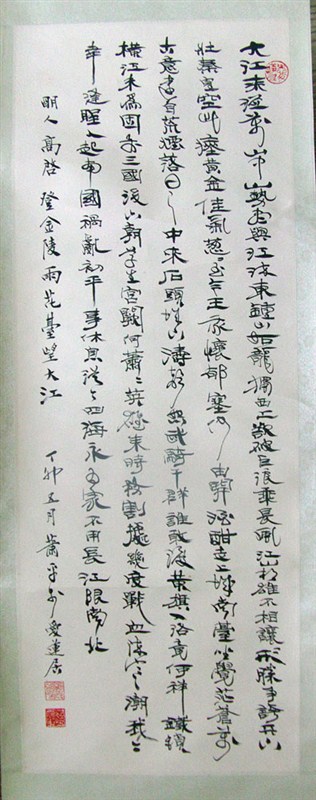 大江来從萬山中山勢盡與江流東鍾山如龍獨西上欲破巨浪乘長風江山相雄不相讓形勝爭誇天下
壯秦皇空此瘞黃金佳氣葱〻至今王我懷鬱塞何由開酒酣走上城南臺坐覺茫蒼萬
古意遠自荒煙落日之中来石頭城下濤聲怒武騎千群誰敢渡黃旗入洛竟何祥鐵鎖
橫江未為固前三國後六朝草生宮闕何蕭〻英雄来時務割據幾度戰血流寒潮我生
幸逢聖人起南國禍亂初平事休息從今四海永為家不用長江限南北
明人高啓登金陵雨花臺望大江 丁卯五月蕭平於愛蓮居